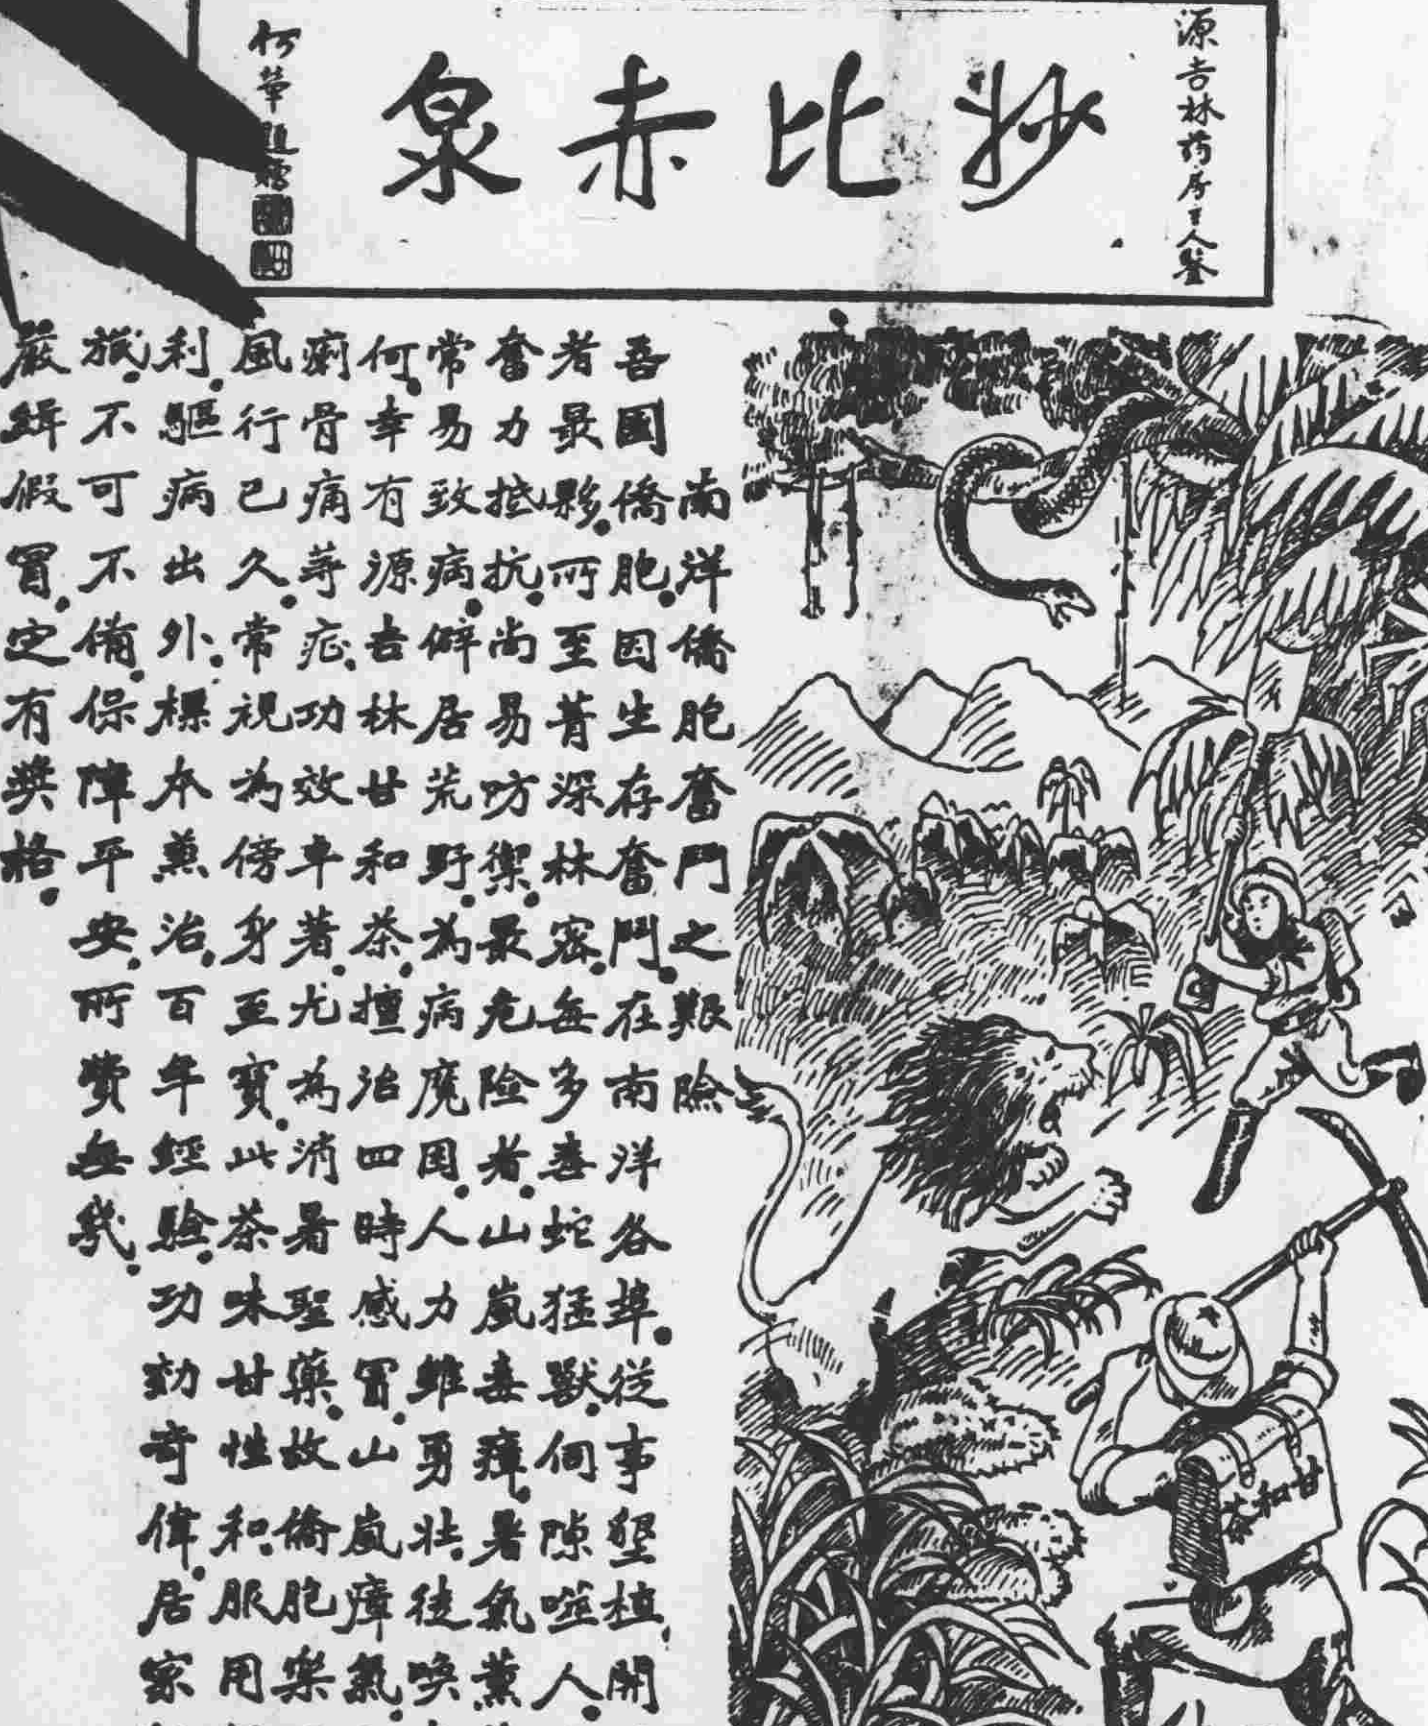 源吉林葯房主人鑒
玅比赤泉
何華題贈
南洋僑胞奮鬥之艱險
吾國僑胞。因生存奮鬥。在南洋各埠。從事墾植,開
者最夥。所至菁深林密。每多毒蛇猛獸。伺隙噬人。
奮力抵抗。尚易防禦。最危險者。山嵐毒瘴。暑氣薰
常易致病。僻居荒野。為病魔困。人力雖勇壯。徒喚
何。幸有源吉林甘和茶。擅治四時感冒。山嵐瘴氣。
痢骨痛等症。功效卓著。尤為消暑聖藥。故僑胞樂
風行已久。常視為傍身至寶。此茶味甘性和。服用
利。驅病出外。標本兼治。百年經驗。功効奇偉。居家
旅。不可不備。保障平安。所費無幾。
嚴緝假冒。定有獎格。
甘和茶